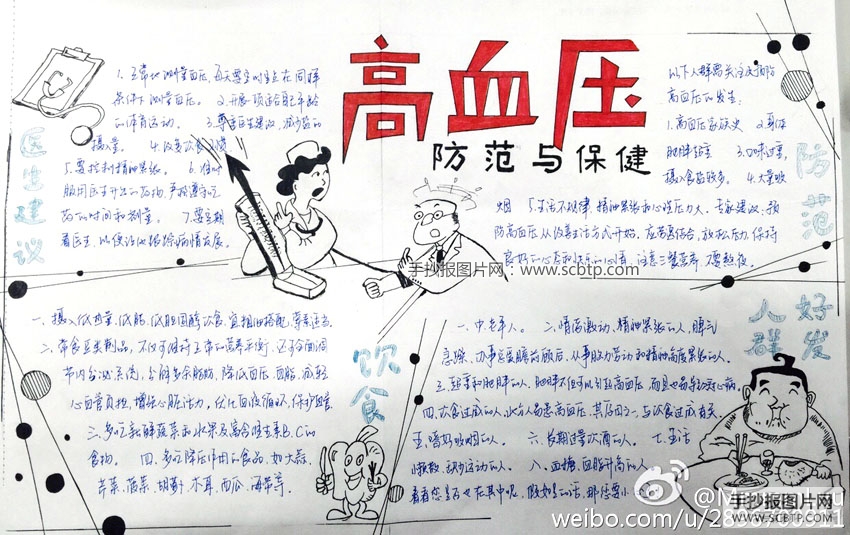 高血压
防范与保健
医生建议
1.正常地测量血压,每天要定时坐在同样
条件下测量血压。 2.开展一项适合自己年龄
的体育运动。 3.尊重医生建议,减少盐的
摄入量。 4.改善饮食习惯
5.要控制精神紧张。 6.准时
服用医生开出的药物,严格遵守吃
药的时间和剂量。 7.要定期
看医生,以便让他跟踪病情发展。
防范
以下人群需关注及预防
高血压的发生:
1.高血压家族史 2.身体
肥胖超重 3.口味过重,
摄入食盐较多。 4.大量吸
烟 5.生活不规律,精神紧张和心理压力大。专家建议:预
防高血压从改善生活方式开始,应劳逸结合,放松压力,保持
良好的心态和快乐的心情,注意三餐营养,不要熬夜。
手抄报图片网:www.scbtp.com
饮食
一、摄入低热量、低脂、低胆固醇饮食,宜粗细搭配,营养适当
二、常食豆类制品,不仅可维持正常的营养平衡,还可全面调
节内分泌系统,分解多余脂肪,降低血压、血脂,减轻
心血管负担,增强心脏活力,优化血液循环,保护血管
三、多吃新鲜蔬菜和水果及富含维生素B、C的
食物。 四、多吃降压作用的食品,如大蒜、
芹菜、菠菜、胡萝卜、木耳、西瓜、海带等。
好发人群
一、中老年人。 二、情绪激动、精神紧张的人,脾气
急躁、办事总瞻前顾后,从事脑力劳动和精神高度紧张的人。
三、超重和肥胖的人,肥胖不但可以引起高血压,而且也易患冠心病。
四、饮食过咸的人,此方人易患高血压,其原因之一,与饮食过咸有关。
五、嗜好吸烟的人。 六、长期过量饮酒的人。 七、生活
懒散,缺少运动的人。 八、血糖、血脂升高的人。
看看您是否也在其中呢,假如是的话,那您要小
weibo.com/u/2
手抄报图片网
WWW.SCBTP.COM